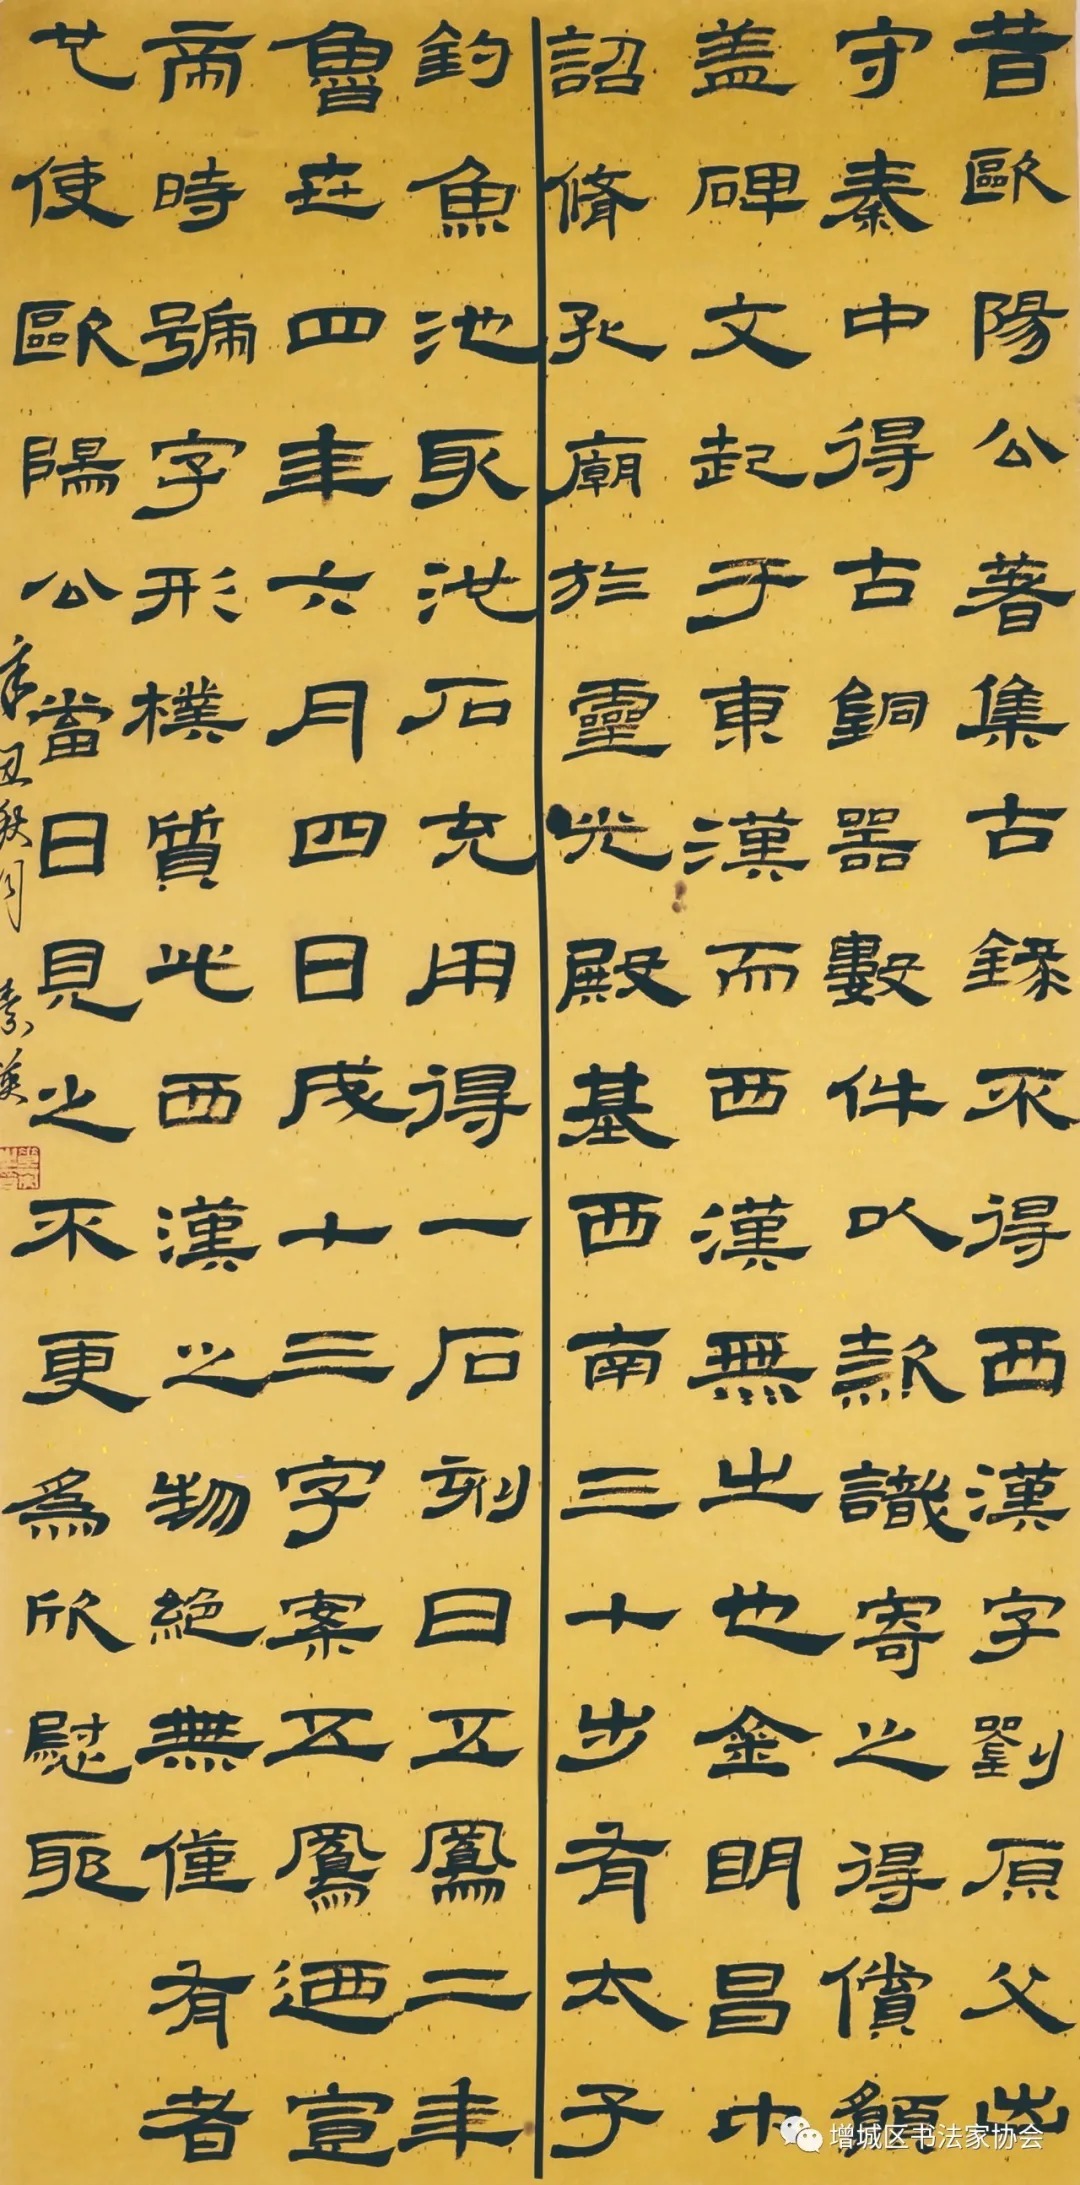 昔歐陽公著集古錄不得西漢字劉原父出
守秦中得古銅器數件以款識寄之得償願
蓋碑文起于東漢而西漢無之也金明昌中
詔脩孔廟於靈光殿基西南三十步有太子
釣魚池取池石充用得一石刻曰五鳳二年
魯卅四年六月四日成十三字案五鳳迺宣
帝時號字形樸質此西漢之物絕無僅有者
也使歐陽公當日見之不更為欣慰耶
辛丑秋月
增城区书法家协会